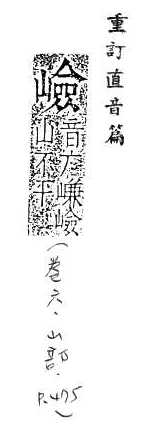 重訂直音篇
嶮
音方嵰嶮
山不平
(卷六、山部、
P.475)